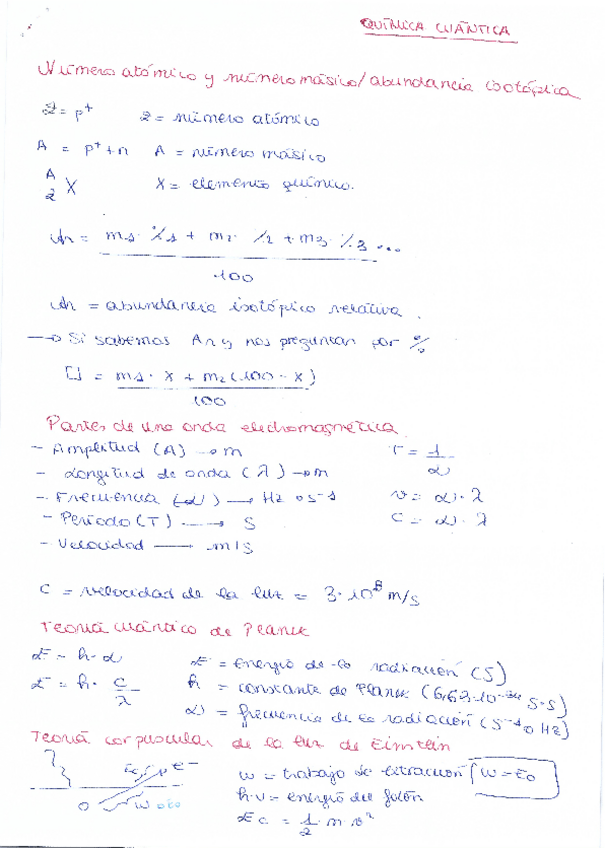 QUÍMICA CUÁNTICA
Número atómico y número másico/abundancia isotópica
Z = p⁺ Z = número atómico
A = p⁺ + n A = número másico
A Z X X = elemento químico.
Ar = m₁· %₁ + m₂· %₂ + m₃· %₃ ...
100
Ar = abundancia isotópico relativa.
→ Si sabemos Ar y nos preguntan por %
[] = m₁· X + m₂(100 - X)
100
Partes de una onda electromagnética
- Amplitud (A) → m T = 1/ν
- Longitud de onda (λ) → m
- Frecuencia (ν) → Hz o s⁻¹ v = ν · λ
- Período (T) → s c = ν · λ
- Velocidad — m/s
c = velocidad de la luz = 3·10⁸ m/s
Teoría cuántico de Planck
E = h·ν E = energía de la radiación (J)
E = h· c/λ h = constante de Planck (6,63·10⁻³⁴ J·s)
ν = frecuencia de la radiación (s⁻¹ o Hz)
Teoría corpuscular de la luz de Einstein
Ec e⁻ w = trabajo de extracción / w = E₀
O w h·ν = energía del fotón
Ec = 1/2 m v²